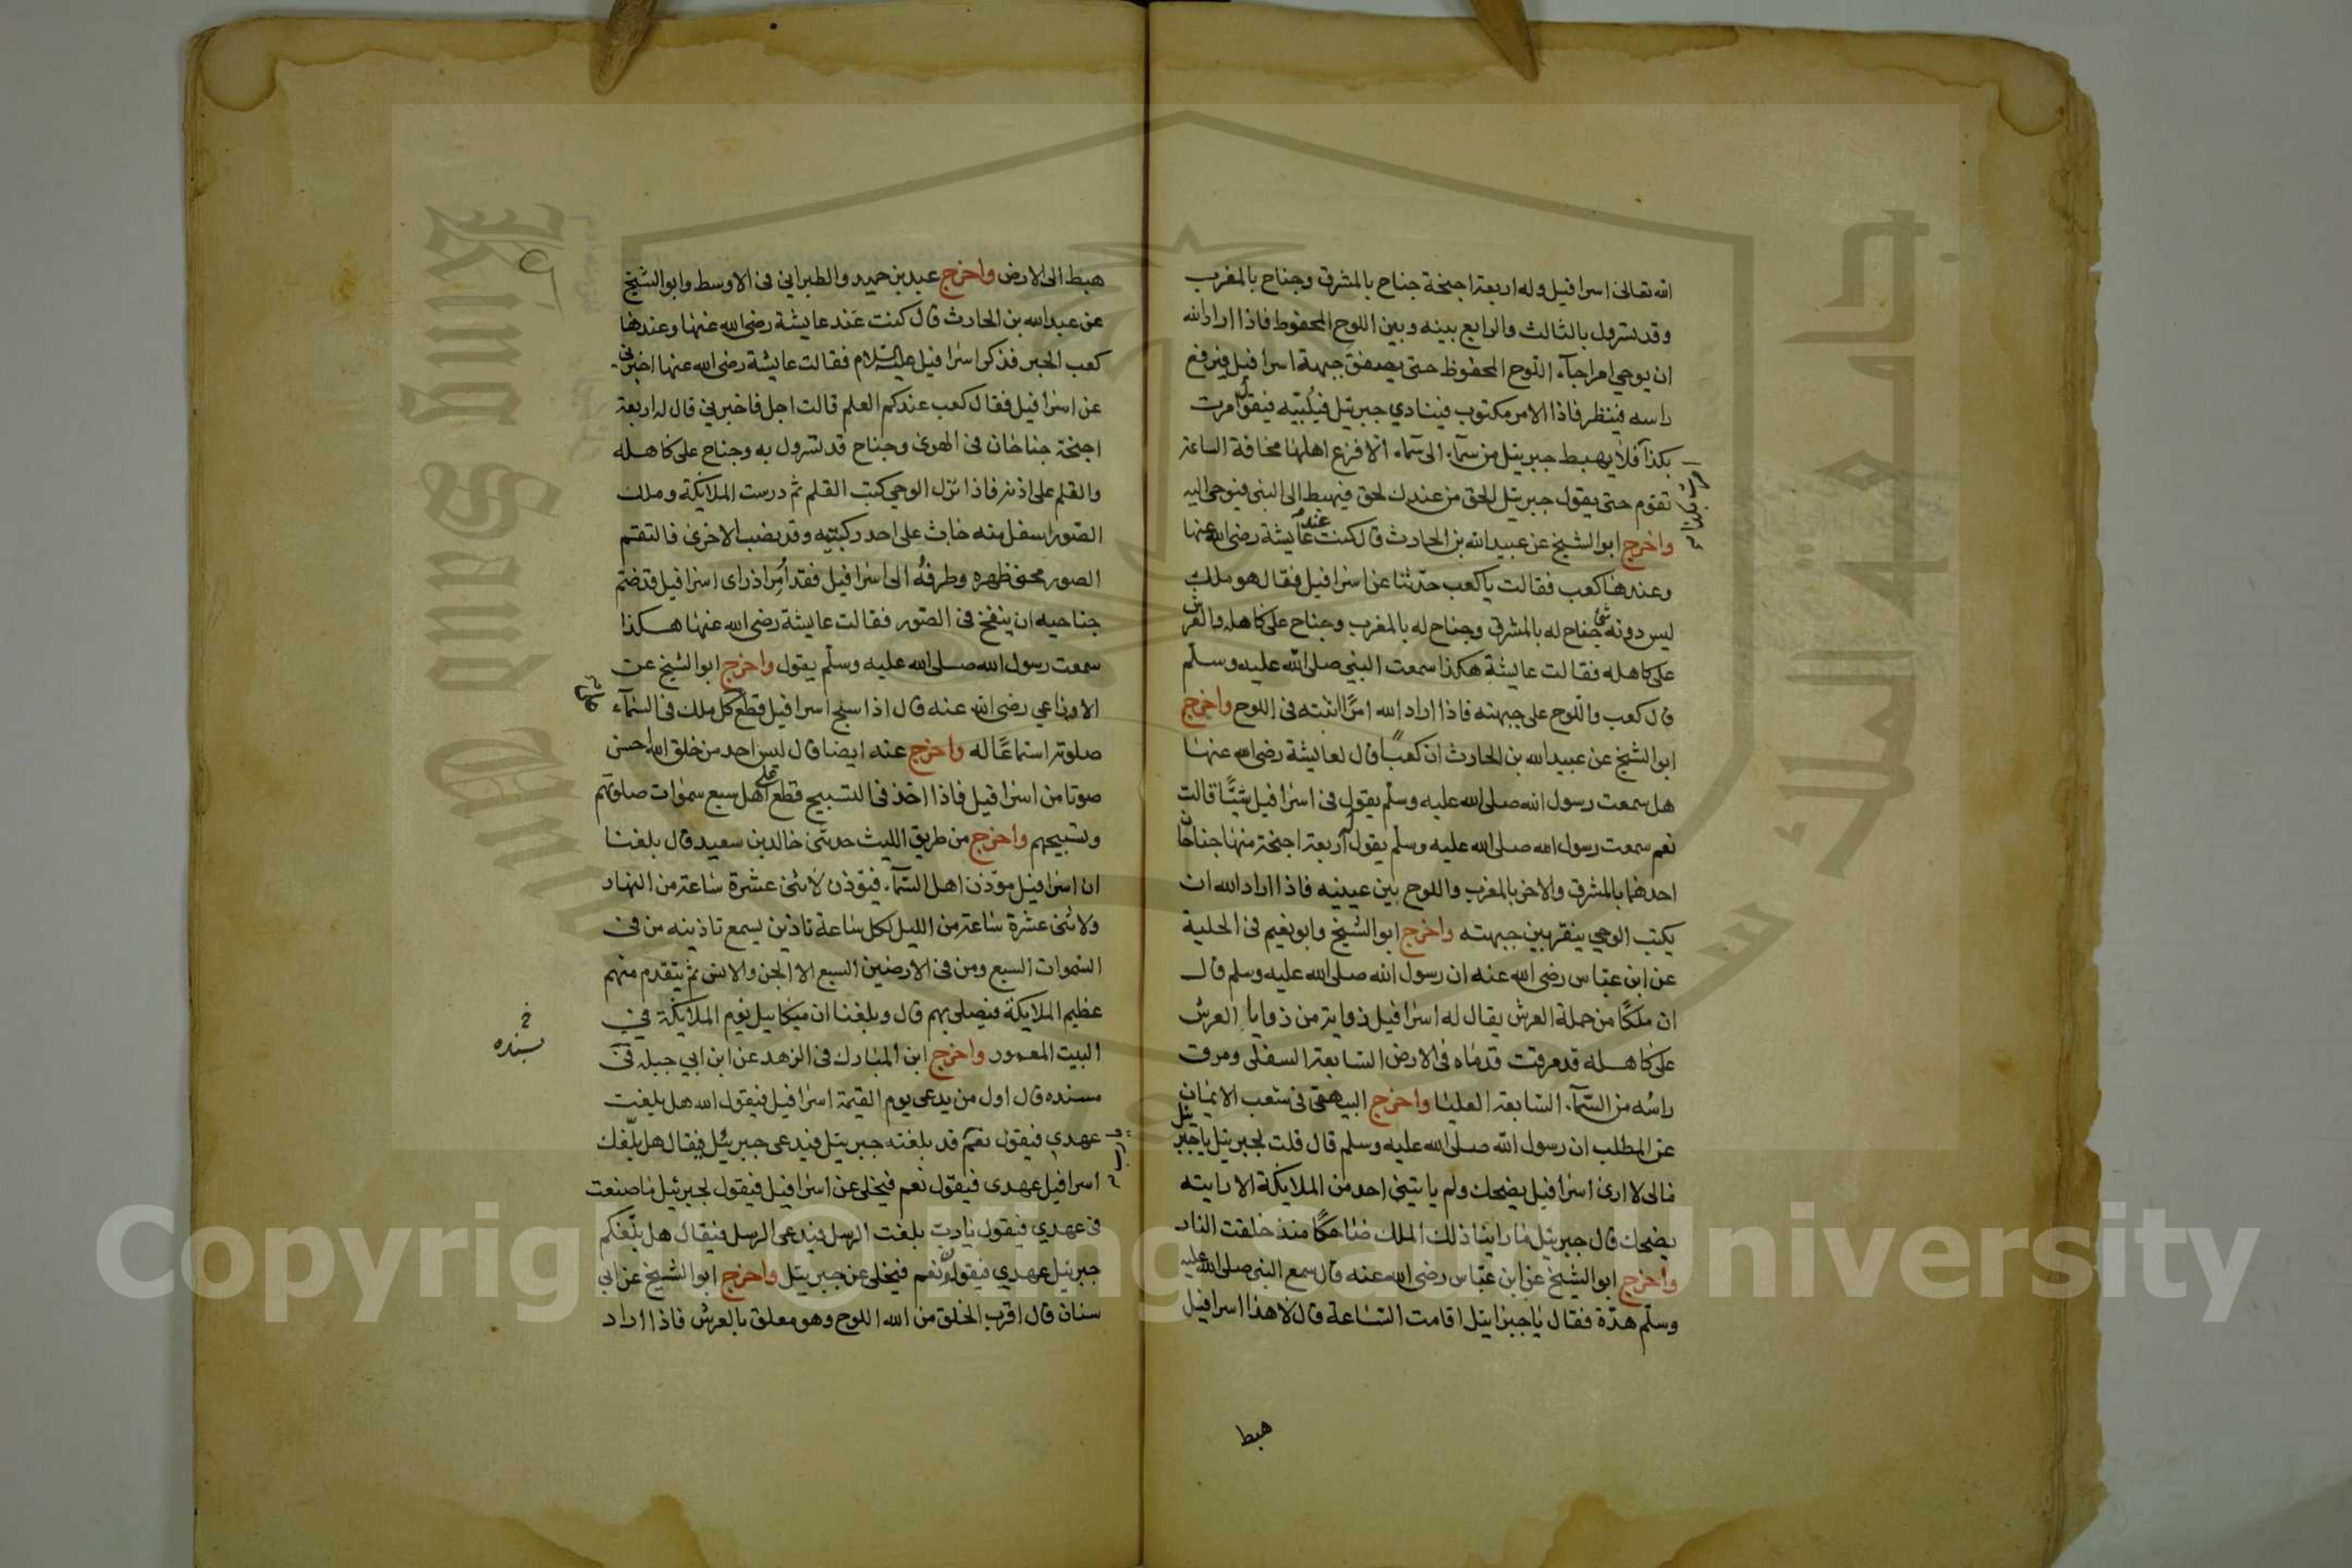 الله تعالى اسرافيل وله اربعة اجنحة جناح بالمشرق وجناح بالمغرب
وقد تسرول بالثالث والرابع بينه وبين اللوح المحفوظ فاذا اراد الله
ان يوحي امرا جآء اللوح المحفوظ حتى يصفق جبهة اسرافيل فيرفع
راسه فينظر فاذا الامر مكتوب فينادي جبريل فيلبيه فيقول امرت
بكذا فلا يهبط جبريل من سمآء الى سمآء الا فزع اهلها مخافة الساعة
تقوم حتى يقول جبريل الحق من عند الحق فيهبط الى النبي فيوحي اليه
واخرج ابو الشيخ عن عبيد الله بن الحارث قال كنت عند عايشة رضى الله عنها
وعندها كعب فقالت يا كعب حدثنا عن اسرافيل فقال هو ملك
ليس دونه شئ جناح له بالمشرق وجناح له بالمغرب وجناح على كاهله والعرش
على كاهله فقالت عايشة هكذا سمعت النبي صلى الله عليه وسلم
قال كعب واللوح على جبهته فاذا اراد الله امرًا اثبته في اللوح واخرج
ابو الشيخ عن عبيد الله بن الحارث ان كعبًا قال لعايشة رضى الله عنها
هل سمعت رسول الله صلى الله عليه وسلم يقول في اسرافيل شيئًا قالت
نعم سمعت رسول الله صلى الله عليه وسلم يقول له اربعة اجنحة منها جناحان
احدهما بالمشرق والاخر بالمغرب واللوح بين عينيه فاذا اراد الله ان
يكتب الوحي ينقر بين جبهته واخرج ابو الشيخ وابو نعيم في الحلية
عن ابن عباس رضى الله عنه ان رسول الله صلى الله عليه وسلم قال
ان ملكًا من حملة العرش يقال له اسرافيل زواية من زوايا العرش
على كاهله قد مرقت قدماه في الارض السابعة السفلى ومرق
راسه من السمآء السابعة العليا واخرج البيهقى في شعب الايمان
عن المطلب ان رسول الله صلى الله عليه وسلم قال قلت لجبريل يا جبريل
مالى لا ارى اسرافيل يضحك ولم ياتيني احد من الملايكة الا رايته
يضحك قال جبريل ما راينا ذلك الملك ضاحكًا منذ خلقت النار
واخرج ابو الشيخ عن ابن عباس رضى الله عنه قال سمع النبى صلى الله عليه
وسلم هدة فقال يا جبرايل اقامت الساعة قال لا هذا اسرافيل
هبط
هبط الى الارض واخرج عبد بن حميد والطبراني في الاوسط وابو الشيخ
عن عبد الله بن الحارث قال كنت عند عايشة رضى الله عنها وعندها
كعب الحبر فذكر اسرافيل عليه السلام فقالت عايشة رضى الله عنها اخبرني
عن اسرافيل فقال كعب عندكم العلم قالت اجل فاخبريني قال له اربعة
اجنحة جناحان في الهوى وجناح قد تسرول به وجناح على كاهله
والقلم على اذنه فاذا نزل الوحي كتب القلم ثم درست الملايكة وملك
الصور اسفل منه جاث على احد ركبتيه وقد نصب الاخرى فالتقم
الصور محنى ظهره وطرفه الى اسرافيل فقد أمر اذا راى اسرافيل قد ضم
جناحيه ان ينفخ في الصور فقالت عايشة رضى الله عنها هكذا
سمعت رسول الله صلى الله عليه وسلم يقول واخرج ابو الشيخ عن
الاوزاعي رضى الله عنه قال اذا سبح اسرافيل قطع كل ملك في السمآء
صلوته استماعًا له واخرج عنه ايضا قال ليس احد من خلق الله احسن
صوتا من اسرافيل فاذا اخذ في التسبيح قطع على اهل سبع سموات صلوتهم
وتسبيحهم واخرج من طريق الليث حدثنى خالد بن سعيد قال بلغنا
ان اسرافيل موذن اهل السمآء فيوذن لاثنى عشرة ساعة من النهار
ولاثنى عشرة ساعة من الليل لكل ساعة تاذين يسمع تاذينه من في
السموات السبع ومن في الارضين السبع الا الجن والانس ثم يتقدم منهم
عظيم الملايكة فيصلى بهم قال وبلغنا ان ميكاييل يوم الملايكة في
البيت المعمور واخرج ابن المبارك في الزهد عن ابن ابي جبلة في
مسنده قال اول من يدعى يوم القيمة اسرافيل فيقول الله هل بلغت
بسنده
عهدي فيقول نعم قد بلغته جبريل فيدعى جبريل فيقال هل بلغك
اسرافيل عهدى فيقول نعم فيخلى عن اسرافيل فيقول لجبريل ما صنعت
في عهدي فيقول يا رب بلغت الرسل فيدعى الرسل فيقال هل بلغكم
جبريل عهدي فيقولون نعم فيخلى عن جبريل واخرج ابو الشيخ عن ابي
سنان قال اقرب الخلق من الله اللوح وهو معلق بالعرش فاذا اراد
Copyright © King Saud University